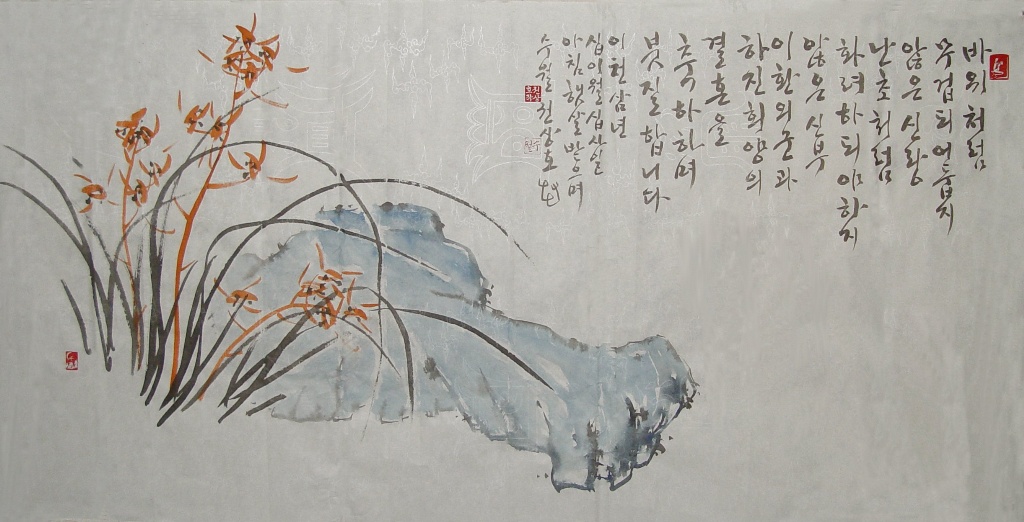 바위처럼
무겁되 어둡지
않은 신랑
난초처럼
화려하되 야하지
않은 신부
이환의 군과
하진희 양의
결혼을
축하하며
붓질합니다
이천삼년
십이월 십사일
아침 햇살 받으며
수월 권상호